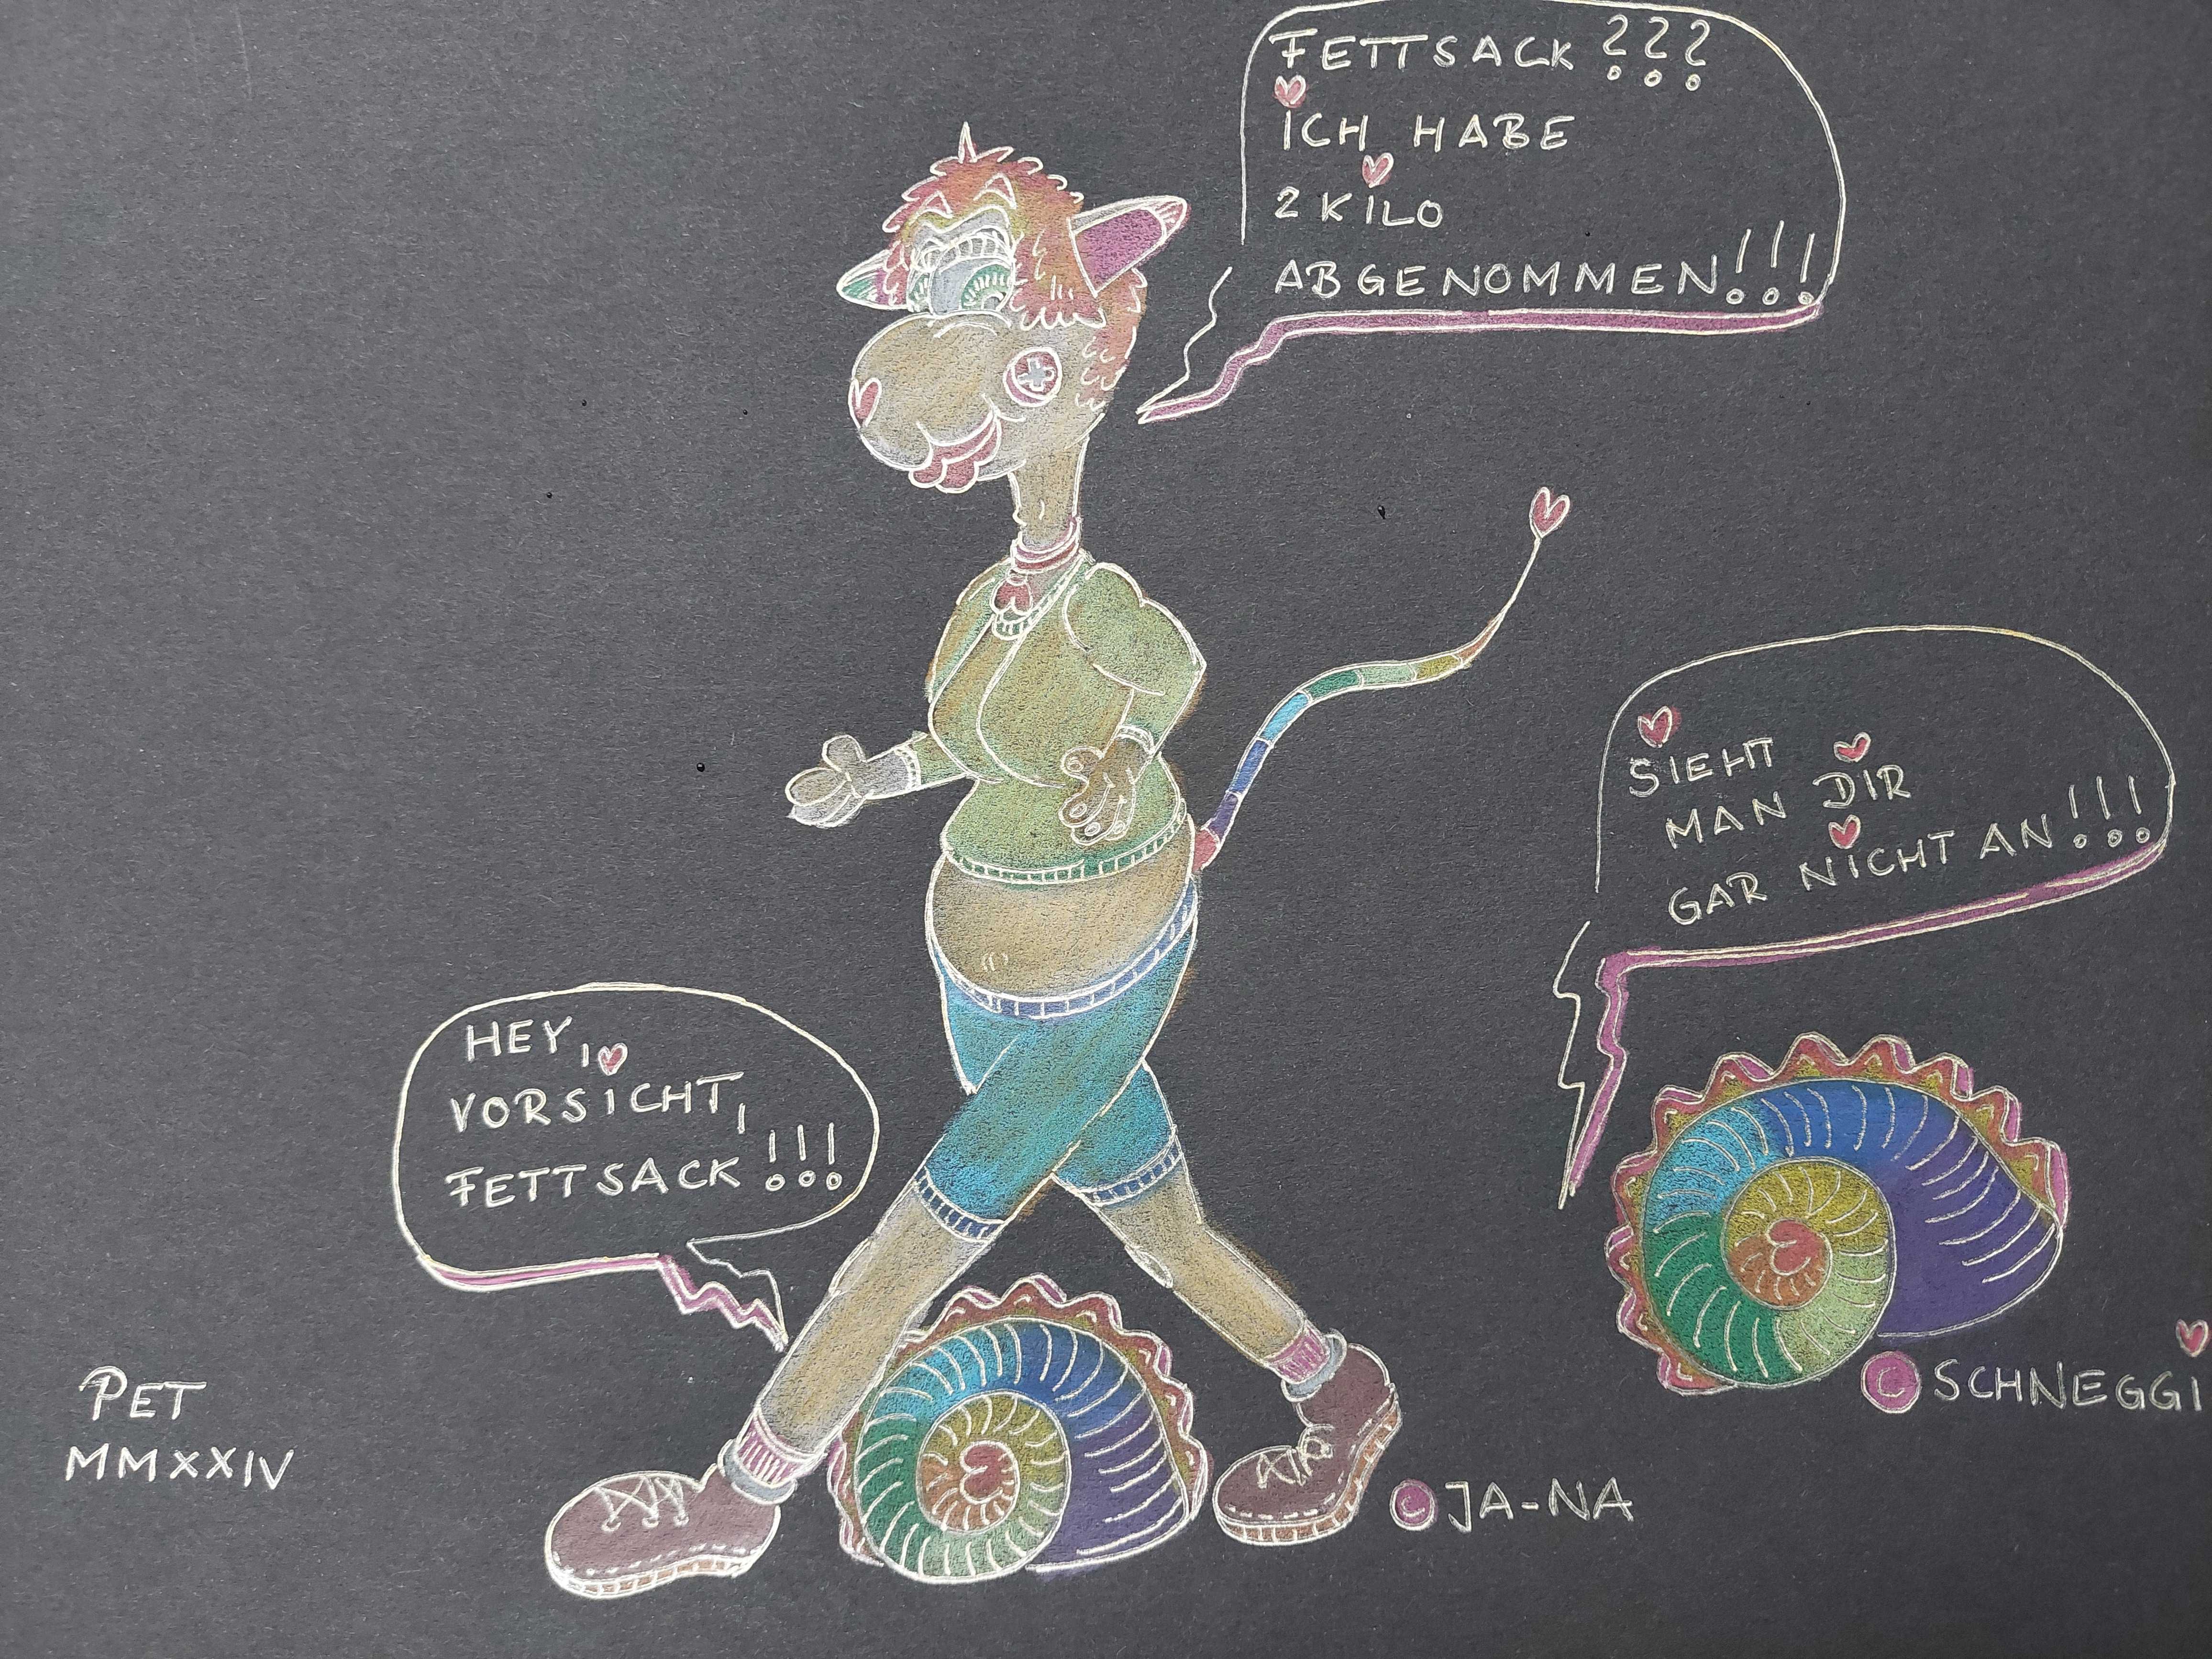 FETTSACK ???
ICH HABE
2 KILO
ABGENOMMEN!!!
SIEHT
MAN DIR
GAR NICHT AN!!!
HEY,
VORSICHT,
FETTSACK!!!
PET
MMXXIV
© JA-NA
© SCHNEGGI